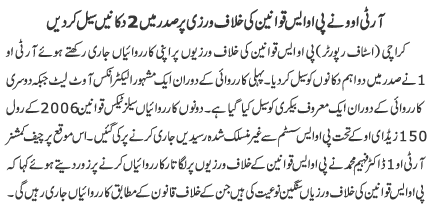 آر ٹی او ونے پی او ایس قوانین کی خلاف ورزی پر صدر میں 2 دکانیں سیل کر دیں
کراچی (اسٹاف رپورٹر) پی او ایس قوانین کی خلاف ورزیوں پر اپنی کارروائیاں جاری رکھتے ہوئے آر ٹی او
1 نے صدر میں دو اہم دکانوں کو سیل کر دیا۔ پہلی کارروائی کے دوران ایک مشہور الیکٹرانکس آؤٹ لیٹ جبکہ دوسری
کارروائی کے دوران ایک معروف بیکری کو سیل کیا گیا ہے۔ دونوں کارروائیاں سیلز ٹیکس قوانین 2006 کے رول
150 زیڈ ای او کے تحت پی او ایس سسٹم سے غیر منسلک شدہ رسیدیں جاری کرنے پر کی گئیں۔ اس موقع پر چیف کمشنر
آر ٹی او 1 ڈاکٹر فہیم محمد نے پی او ایس قوانین کے خلاف ورزیوں پر لگاتار کارروائیاں کرنے پر زور دیتے ہوئے کہا کہ
پی او ایس قوانین کی خلاف ورزیاں سنگین نوعیت کی ہیں جن کے خلاف قانون کے مطابق کارروائیاں جاری رہیں گی۔